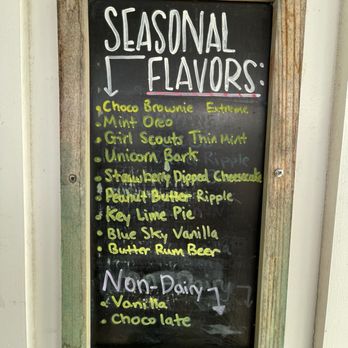 SEASONAL
FLAVORS:
Choco Brownie Extreme
Mint Oreo
Girl Scouts Thin Mint
Unicorn Bark
Strawberry Dipped Cheesecake
Peanut Butter Ripple
Key Lime Pie
Blue Sky Vanilla
Butter Rum Beer
Non-Dairy
Vanilla
Chocolate